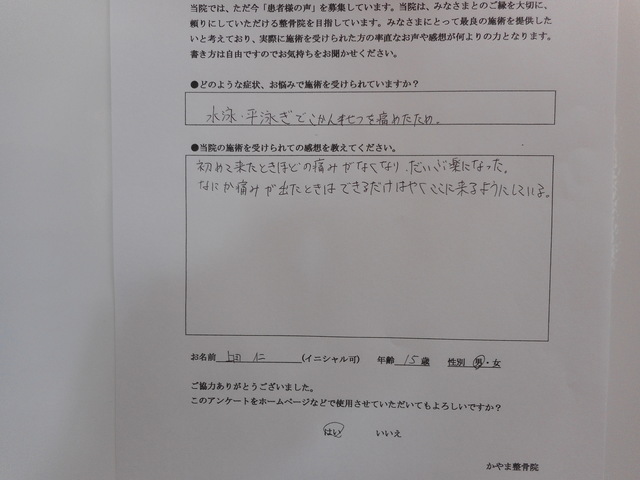 当院では、ただ今「患者様の声」を募集しています。当院は、みなさまとのご縁を大切に、
頼りにしていただける整骨院を目指しています。みなさまにとって最良の施術を提供した
いと考えており、実際に施術を受けられた方の率直なお声や感想が何よりの力となります。
書き方は自由ですのでお気持ちをお聞かせください。
●どのような症状、お悩みで施術を受けられていますか?
水泳・平泳ぎでこかんせつを痛めたため。
●当院の施術を受けられての感想を教えてください。
初めて来たときほどの痛みがなくなり、だいぶ楽になった。
なにか痛みが出たときはできるだけはやくここに来るようにしている。
お名前 上田 仁 (イニシャル可) 年齢 15 歳 性別 男・女
ご協力ありがとうございました。
このアンケートをホームページなどで使用させていただいてもよろしいですか?
はい いいえ
かやま整骨院